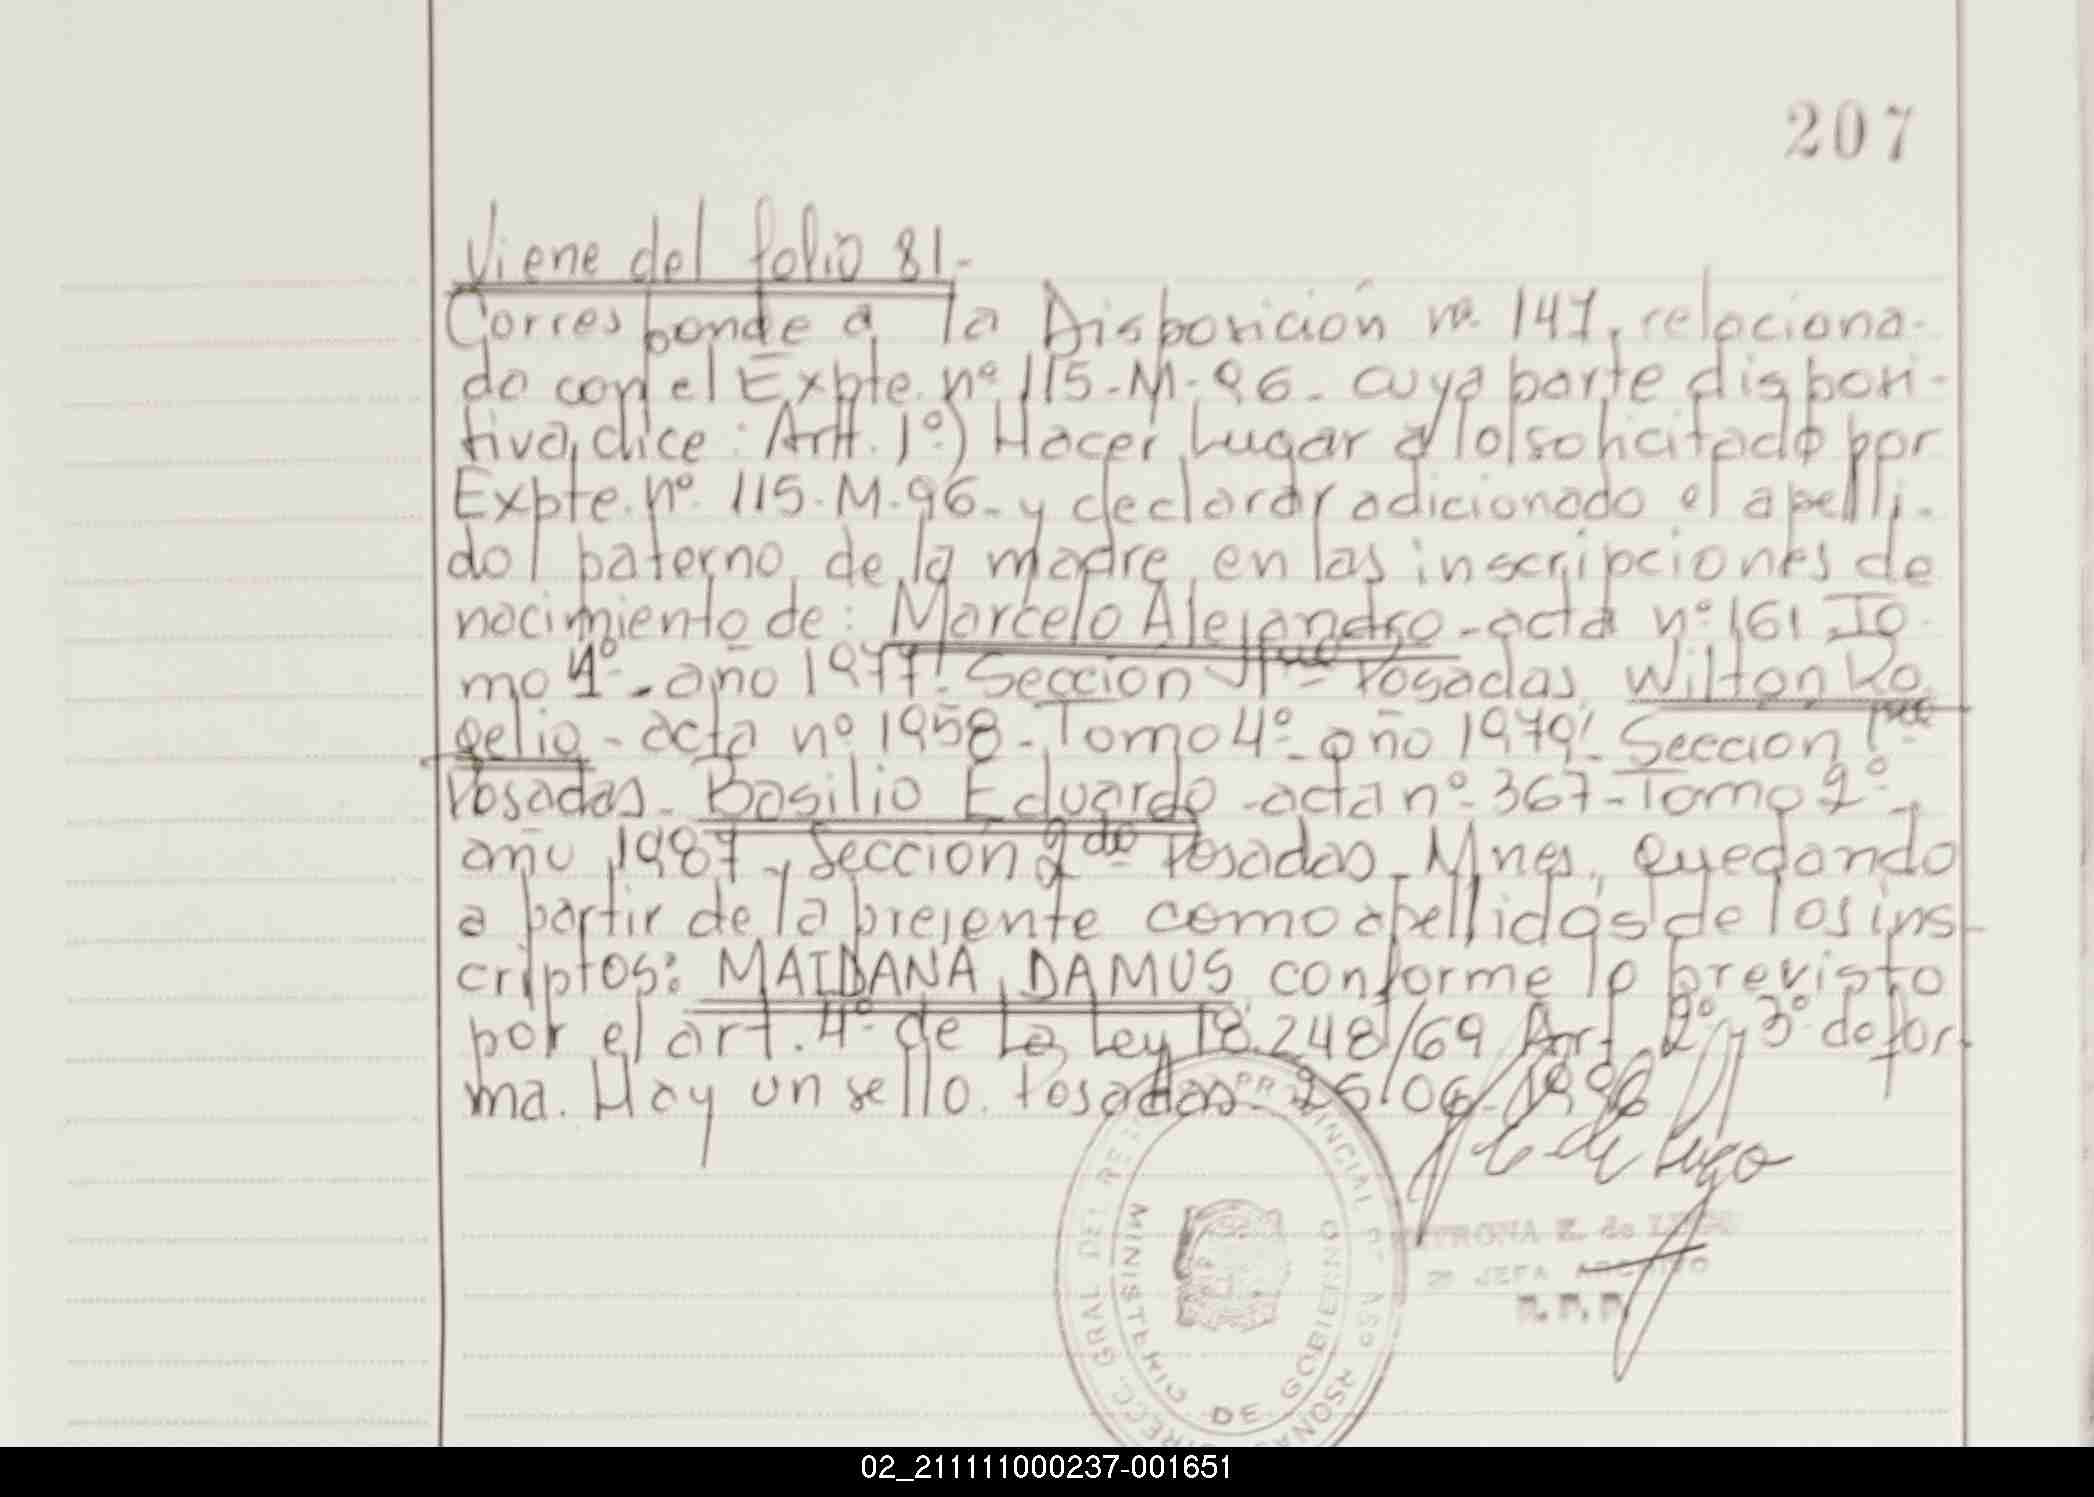 207
Viene del folio 81.-
Corresponde a la Disposición nº 147, relaciona-
do con el Expte. nº 115-M-96- cuya parte disposi-
tiva, dice: Artt. 1º) Hacer Lugar a lo solicitado por
Expte. nº 115-M-96- y declarar adicionado el apelli-
do paterno de la madre en las inscripciones de
nacimiento de: Marcelo Alejandro-acta nº 161 To-
mo 1º-año 1977!-Sección 1ra Posadas, Wilton Ro
gelio-acta nº 1958-Tomo 4º-año 1979!-Sección 1ra
Posadas-Basilio Eduardo-acta nº 367-Tomo 2º-
año 1987-Sección 2da Posadas-Mnes, Quedando
a partir de la presente como apellidos de los ins-
criptos: MAIDANA DAMUS conforme lo previsto
por el art. 4º de La Ley 18.248/69 Art 2º y 3º de for-
ma. Hay un sello. Posadas-
de Lugo
PETRONA E. de LUGO
JEFA ARCHIVO
DIRECC. GRAL DEL PROVINCIAL
MINISTERIO DE GOBIERNO
02_211111000237-001651